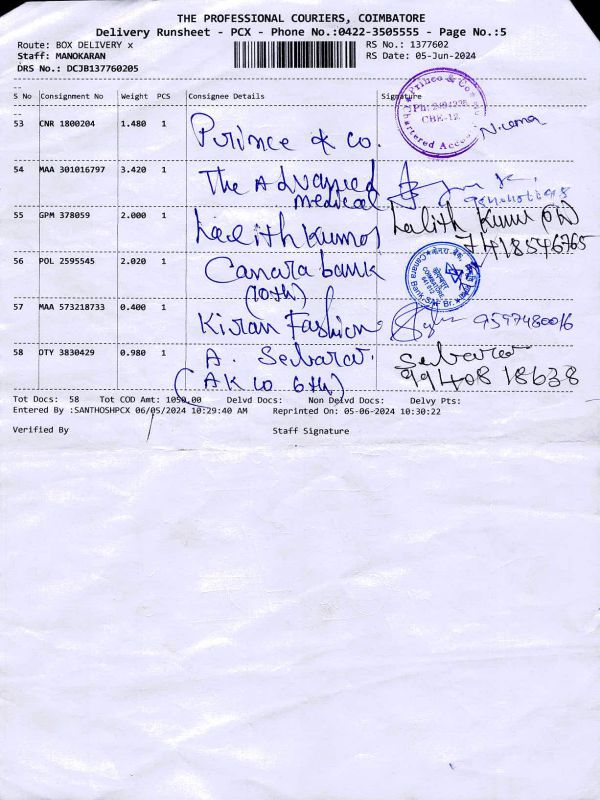 THE PROFESSIONAL COURIERS, COIMBATORE
Delivery Runsheet - PCX - Phone No.:0422-3505555 - Page No.:5
Route: BOX DELIVERY x RS No.: 1377602
Staff: MANOKARAN RS Date: 05-Jun-2024
DRS No.: DCJB137760205
S No Consignment No Weight PCS Consignee Details Signature
53 CNR 1800204 1.480 1 Prince & co.
Prince & Co
Ph: 2494225
CBE-12.
Chartered Accou
54 MAA 301016797 3.420 1 The Advanced
medical
55 GPM 378059 2.000 1 Lalith Kumar Lalith Kumar
7418546765
56 POL 2595545 2.020 1 Canara bank
(10th)
COIMBATORE
Canara Bank
57 MAA 573218733 0.400 1 Kiran Fashion 9597480016
58 DTY 3830429 0.980 1 A. Sebarar.
(AK 10 6th)
9940818638
Tot Docs: 58 Tot COD Amt: 1050.00 Delvd Docs: Non Delvd Docs: Delvy Pts:
Entered By :SANTHOSHPCX 06/05/2024 10:29:40 AM Reprinted On: 05-06-2024 10:30:22
Verified By Staff Signature